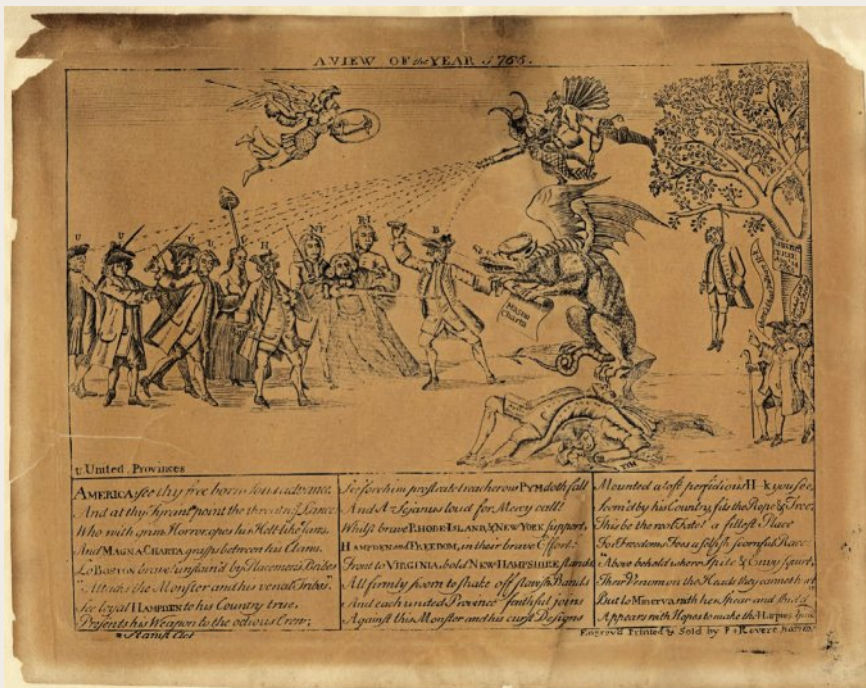 A VIEW OF the YEAR 1765.
U
U
H
NY
RI
B
Magna Charta
PYM
U United Provinces
AMERICA see thy free born sons advance,
And at thy Tyrant point the threat'ning Lance
Who with grim Horror opes his Hell-like Jaws,
And MAGNA CHARTA grasps between his Claws.
Lo BOSTON brave unstain'd by Placemen's Bribes
"Attacks the Monster and his venal Tribes".
See loyal HAMPDEN to his Country true,
Presents his Weapon to the odious Crew;
* Stamp Act
before him prostrate treacherous PYM doth fall
And Sejanus loud for Mercy call!
Whilst brave RHODE ISLAND, & NEW YORK support,
HAMPDEN and FREEDOM, in their brave Effort:
Front to VIRGINIA, bold NEW HAMPSHIRE stands
All firmly sworn to shake off slavish Bands
And each united Province faithful joins
Against this Monster and his curst Designs
Mounted aloft perfidious H—k you see,
Scorn'd by his Country, fits the Rope & Tree;
This be the a fittest Place
For Freedoms Foes a selfish scornful Race:
Above behold where Spite & Envy squirt,
Their Venom on the Heads they cannot hurt
But lo Minerva with her Spear and Shield
Appears with Hopes to make the Harpies Yield
Engrav'd Printed & Sold by P. Revere